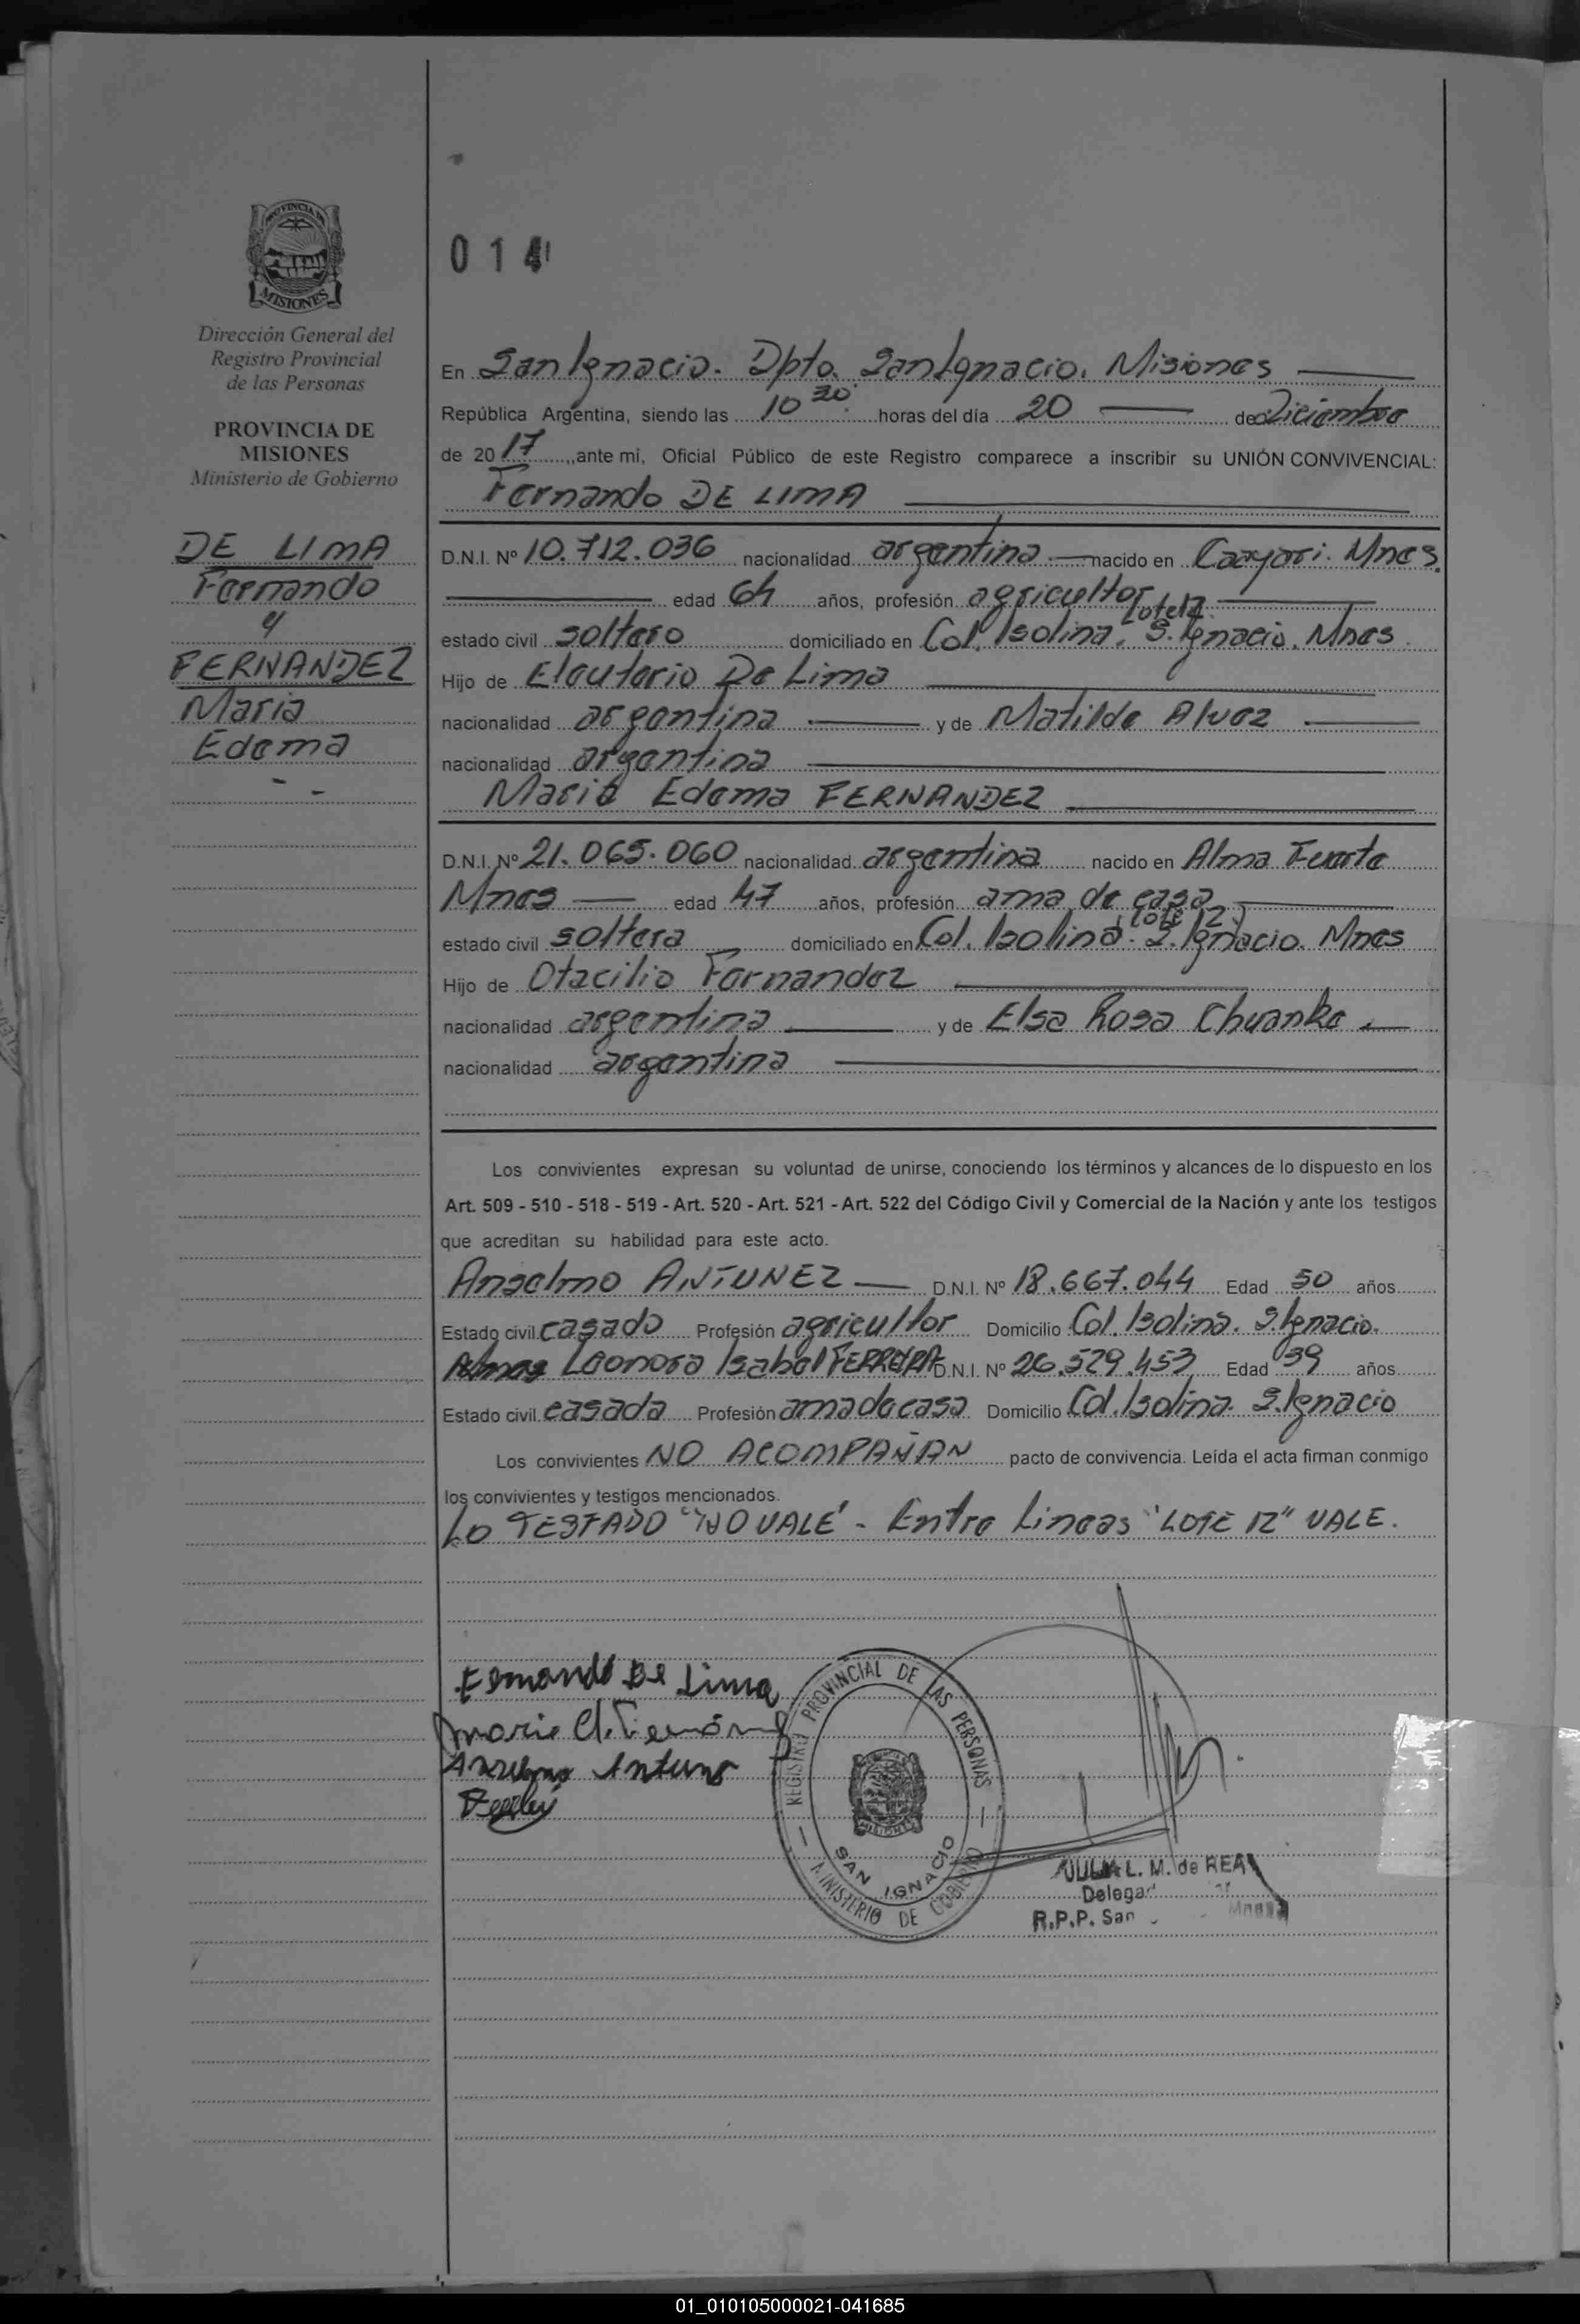 PROVINCIA DE
MISIONES
Dirección General del
Registro Provincial
de las Personas
PROVINCIA DE
MISIONES
Ministerio de Gobierno
DE LIMA
Fernando
y
FERNANDEZ
Maria
Edema
014
En San Ignacio. Dpto. San Ignacio. Misiones
República Argentina, siendo las 10 30 horas del día 20 de Diciembre
de 2017, ante mi, Oficial Público de este Registro comparece a inscribir su UNIÓN CONVIVENCIAL:
Fernando DE LIMA
D.N.I. Nº 10.712.036 nacionalidad argentina nacido en Caayari. Mnes.
edad 64 años, profesión agricultor
Lote 12
estado civil soltero domiciliado en Col. Isolina. S. Ignacio. Mnes.
Hijo de Eleuterio De Lima
nacionalidad argentina y de Matilde Alvez
nacionalidad argentina
Maria Edema FERNANDEZ
D.N.I. Nº 21.065.060 nacionalidad argentina nacido en Alma Fuerte
Mnes edad 47 años, profesión ama de casa
lote 12
estado civil soltera domiciliado en Col. Isolina. S. Ignacio. Mnes
Hijo de Otacilio Fernandez
nacionalidad argentina y de Elsa Rosa Chvanke
nacionalidad argentina
Los convivientes expresan su voluntad de unirse, conociendo los términos y alcances de lo dispuesto en los
Art. 509 - 510 - 518 - 519 - Art. 520 - Art. 521 - Art. 522 del Código Civil y Comercial de la Nación y ante los testigos
que acreditan su habilidad para este acto.
Anselmo ANTUNEZ D.N.I. Nº 18.667.044 Edad 50 años
Estado civil casado Profesión agricultor Domicilio Col. Isolina. S. Ignacio.
Leonora Isabel FERREYRA D.N.I. Nº 26.529.453 Edad 39 años
Estado civil casada Profesión ama de casa Domicilio Col. Isolina. S. Ignacio
Los convivientes NO ACOMPAÑAN pacto de convivencia. Leída el acta firman conmigo
los convivientes y testigos mencionados.
Lo TESTADO "NO VALE" - Entre Lineas "LOTE 12" VALE.
Fernando De Lima
Anselmo Antunes
REGISTRO PROVINCIAL DE LAS PERSONAS
SAN IGNACIO
MINISTERIO DE GOBIERNO
JULIA L. M. de REA
R.P.P. San Mnes
01_010105000021-041685